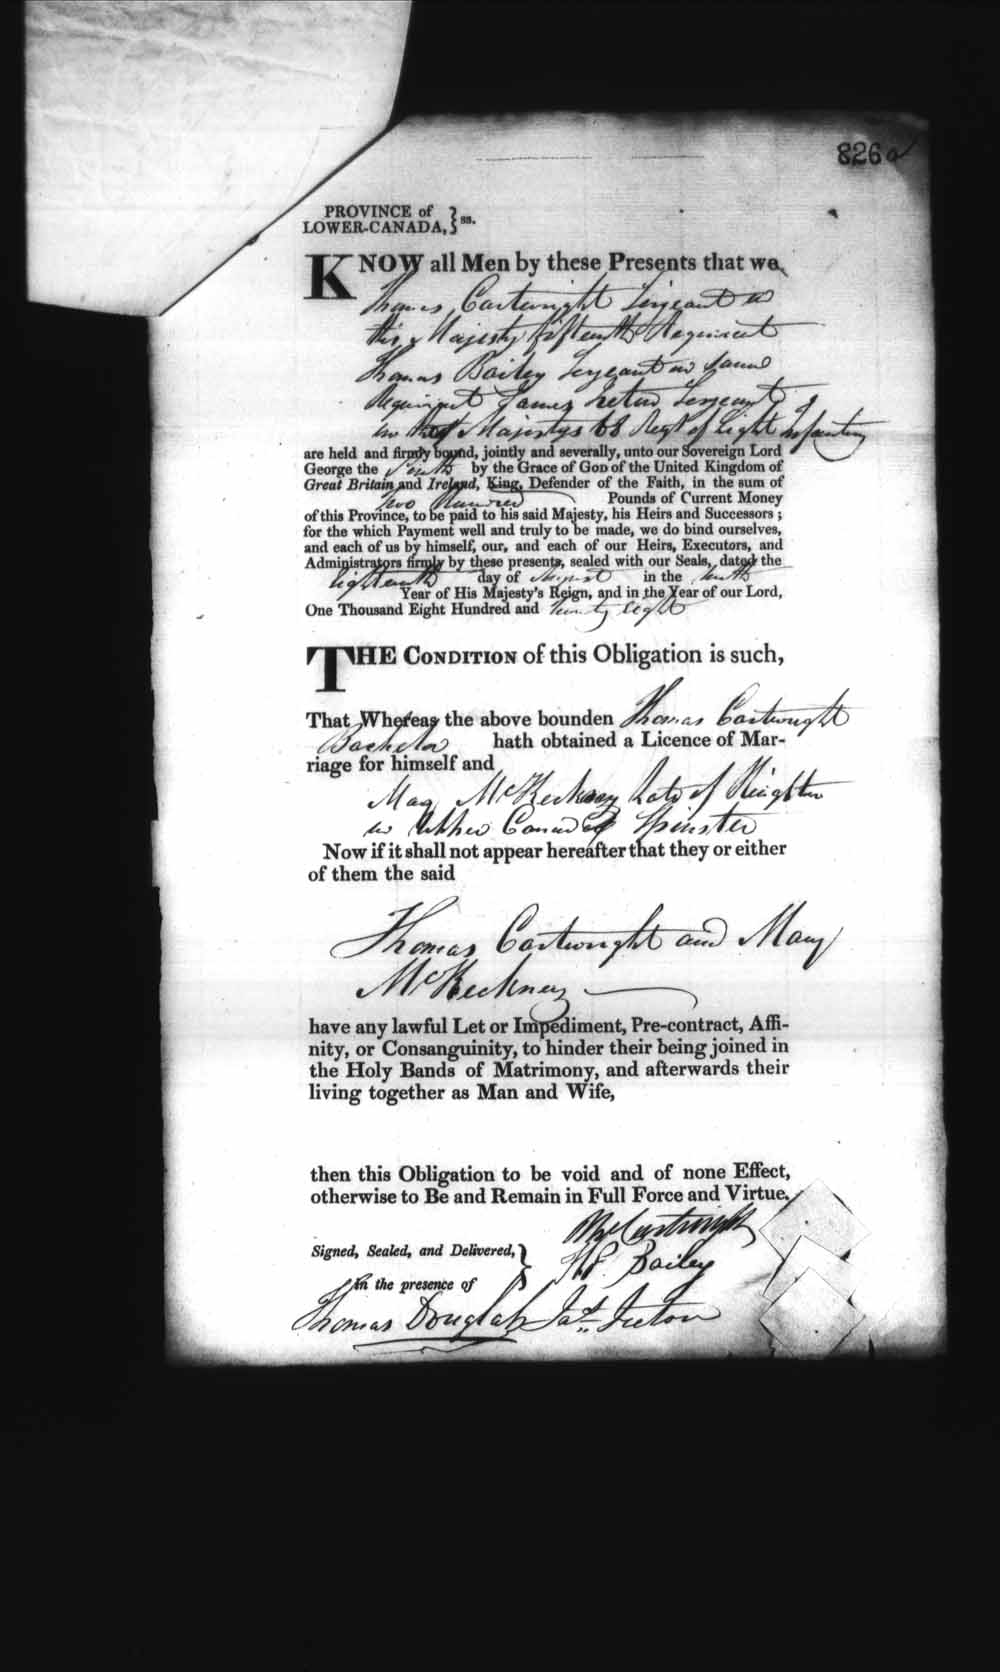 826a
PROVINCE of
LOWER-CANADA, } ss.
KNOW all Men by these Presents that we,
Thomas Cartwright Sergeant in
His Majesty fifteenth Regiment
Thomas Bailey Sergeant in same
Regiment James Sergeant
in Majestys 68 Regt of Light Infantry
are held and firmly bound, jointly and severally, unto our Sovereign Lord
George the Fourth by the Grace of GOD of the United Kingdom of
Great Britain and Ireland, King, Defender of the Faith, in the sum of
Two Hundred Pounds of Current Money
of this Province, to be paid to his said Majesty, his Heirs and Successors;
for the which Payment well and truly to be made, we do bind ourselves,
and each of us by himself, our, and each of our Heirs, Executors, and
Administrators firmly by these presents, sealed with our Seals, dated the
Eighteenth day of August in the ninth
Year of His Majesty's Reign, and in the Year of our Lord,
One Thousand Eight Hundred and twenty eight
THE CONDITION of this Obligation is such,
That Whereas the above bounden Thomas Cartwright
Bachelor hath obtained a Licence of Mar-
riage for himself and
Mary McKeckney late of Kingston
in Upper Canada Spinster
Now if it shall not appear hereafter that they or either
of them the said
Thomas Cartwright and Mary
McKeckney
have any lawful Let or Impediment, Pre-contract, Affi-
nity, or Consanguinity, to hinder their being joined in
the Holy Bands of Matrimony, and afterwards their
living together as Man and Wife,
then this Obligation to be void and of none Effect,
otherwise to Be and Remain in Full Force and Virtue.
Cartwright
Signed, Sealed, and Delivered, }
Bailey
in the presence of
Thomas Douglas Jas.